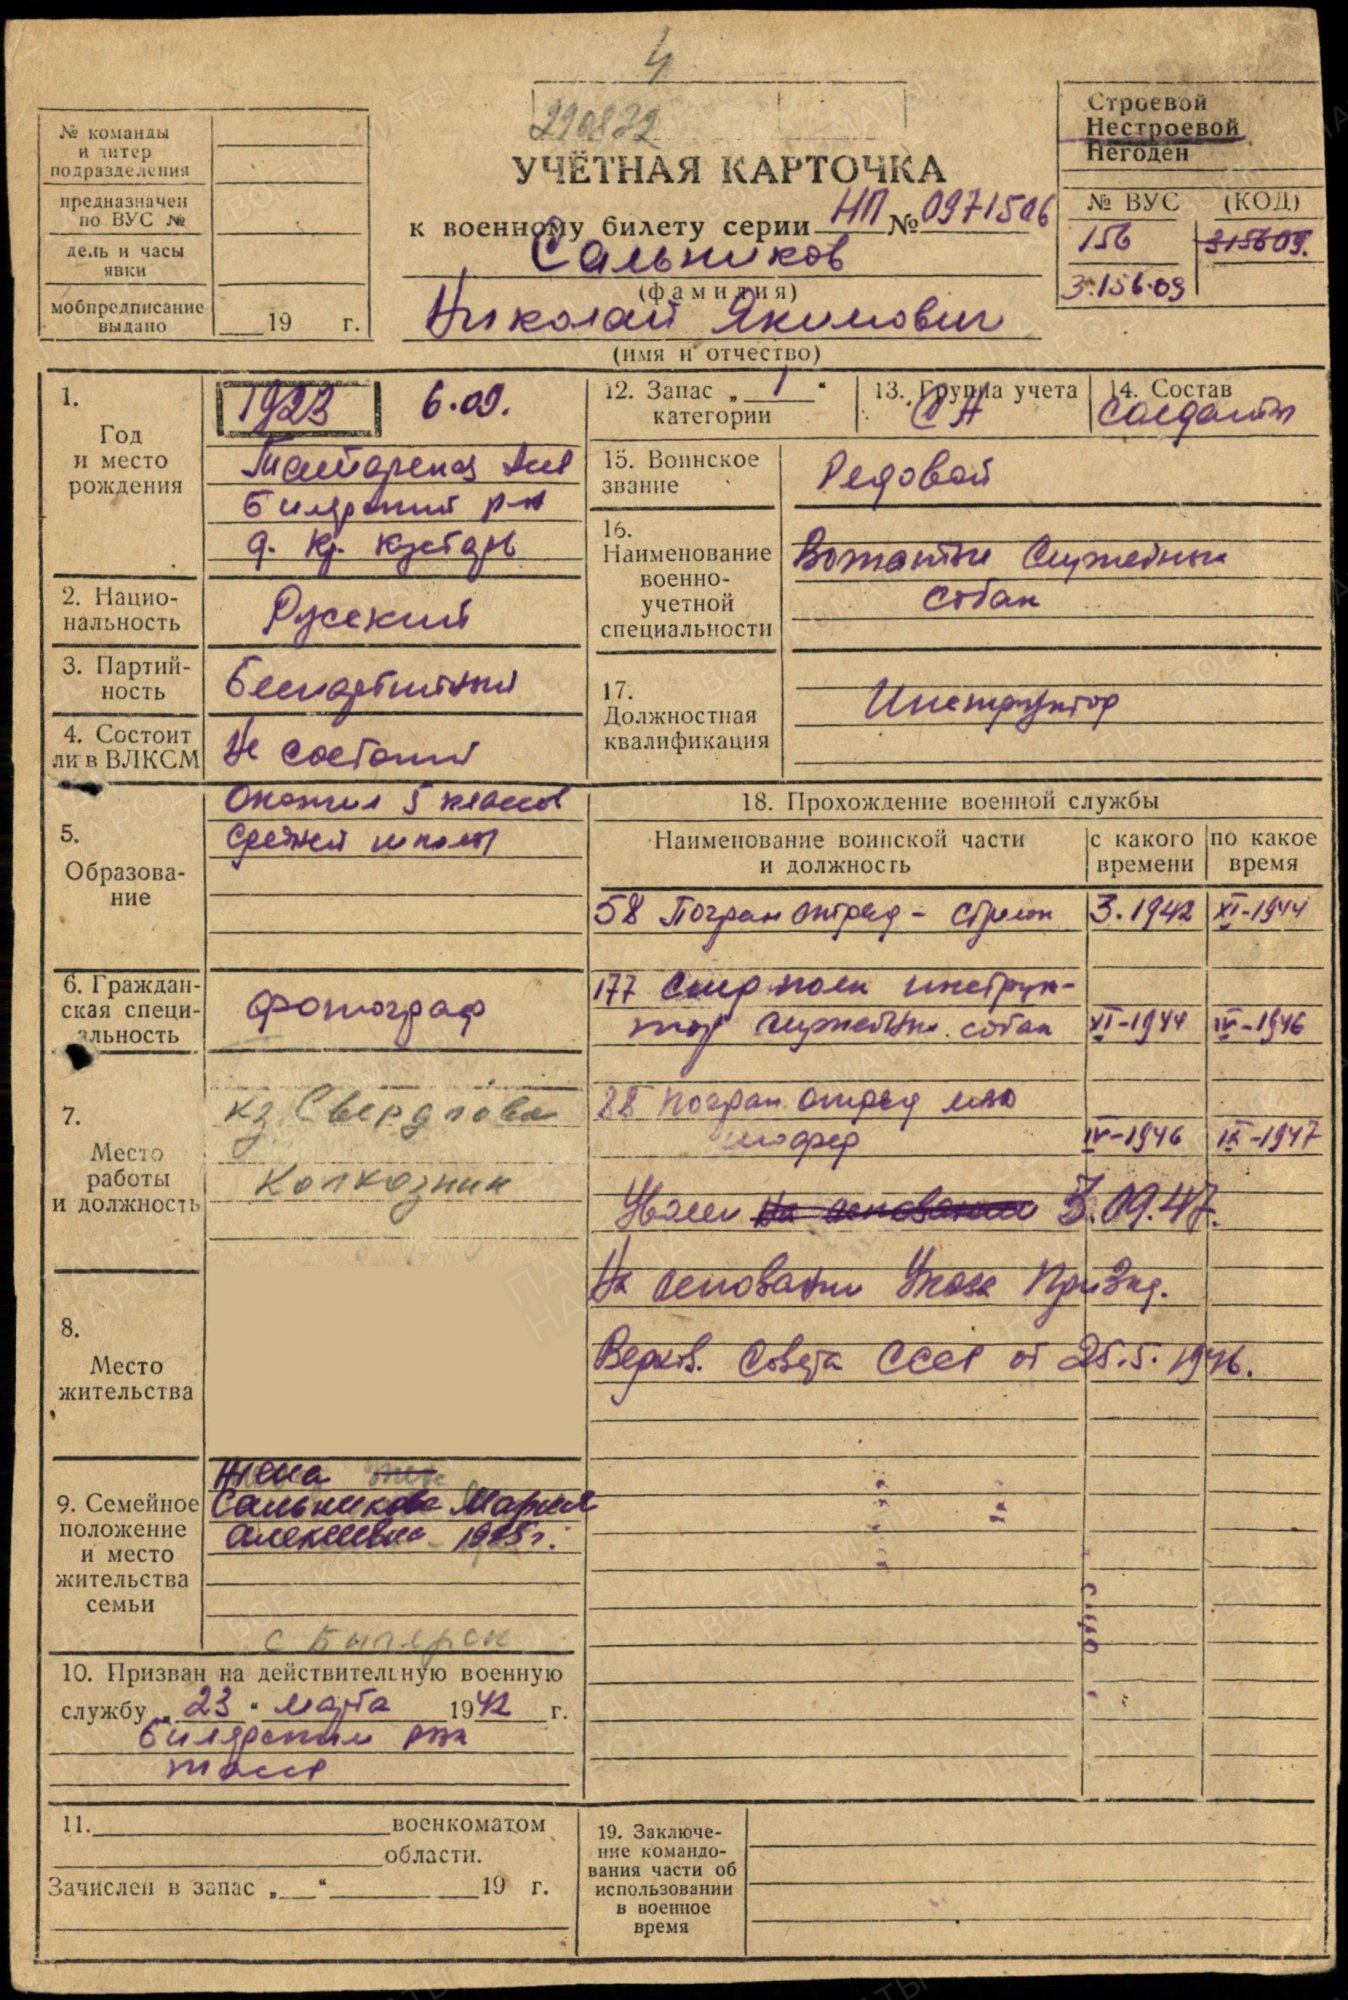 4
220832
№ команды
и литер
подразделения
предназначен
по ВУС №
день и часы
явки
мобпредписание
выдано
19 г.
УЧЁТНАЯ КАРТОЧКА
к военному билету серии НП № 0971506
Сальников
(фамилия)
Николай Якимович
(имя и отчество)
Строевой
Нестроевой
Негоден
№ ВУС (КОД)
156 315609.
3.156.09
1.
Год
и место
рождения
1923 6.09.
Татарская АССР
Билярский р-н
д. Кр. Кустарь
2. Нацио-
нальность
Русский
3. Партий-
ность
Беспартийный
4. Состоит
ли в ВЛКСМ
Не состоит
5.
Образова-
ние
Окончил 5 классов
Средней школы
6. Граждан-
ская специ-
альность
Фотограф
7.
Место
работы
и должность
кз. Свердлова
Колхозник
8.
Место
жительства
9. Семейное
положение
и место
жительства
семьи
Жена
Сальникова Мария
Алексеевна 1925 г.
с Билярск
10. Призван на действительную военную
службу „23“ марта 1942 г.
Билярским рвк
ТАССР
11. военкоматом
области.
Зачислен в запас „ “ 19 г.
12. Запас „ 1 “
категории
13. Группа учета
СА
14. Состав
солдаты
15. Воинское
звание
Рядовой
16.
Наименование
военно-
учетной
специальности
Вожатый служебных
собак
17.
Должностная
квалификация
Инструктор
18. Прохождение военной службы
Наименование воинской части
и должность
с какого
времени
по какое
время
58 Погран отряд - стрелок 3.1942 XI-1944
177 стр полк инструк-
тор служебных собак XI-1944 IV-1946
28 погран отряд
шофер IV-1946 IX-1947
Уволен на основании 3.09.47.
На основании Указа През.
Верхов. Совета СССР от 25.5.1946.
19. Заключе-
ние командо-
вания части об
использовании
в военное
время